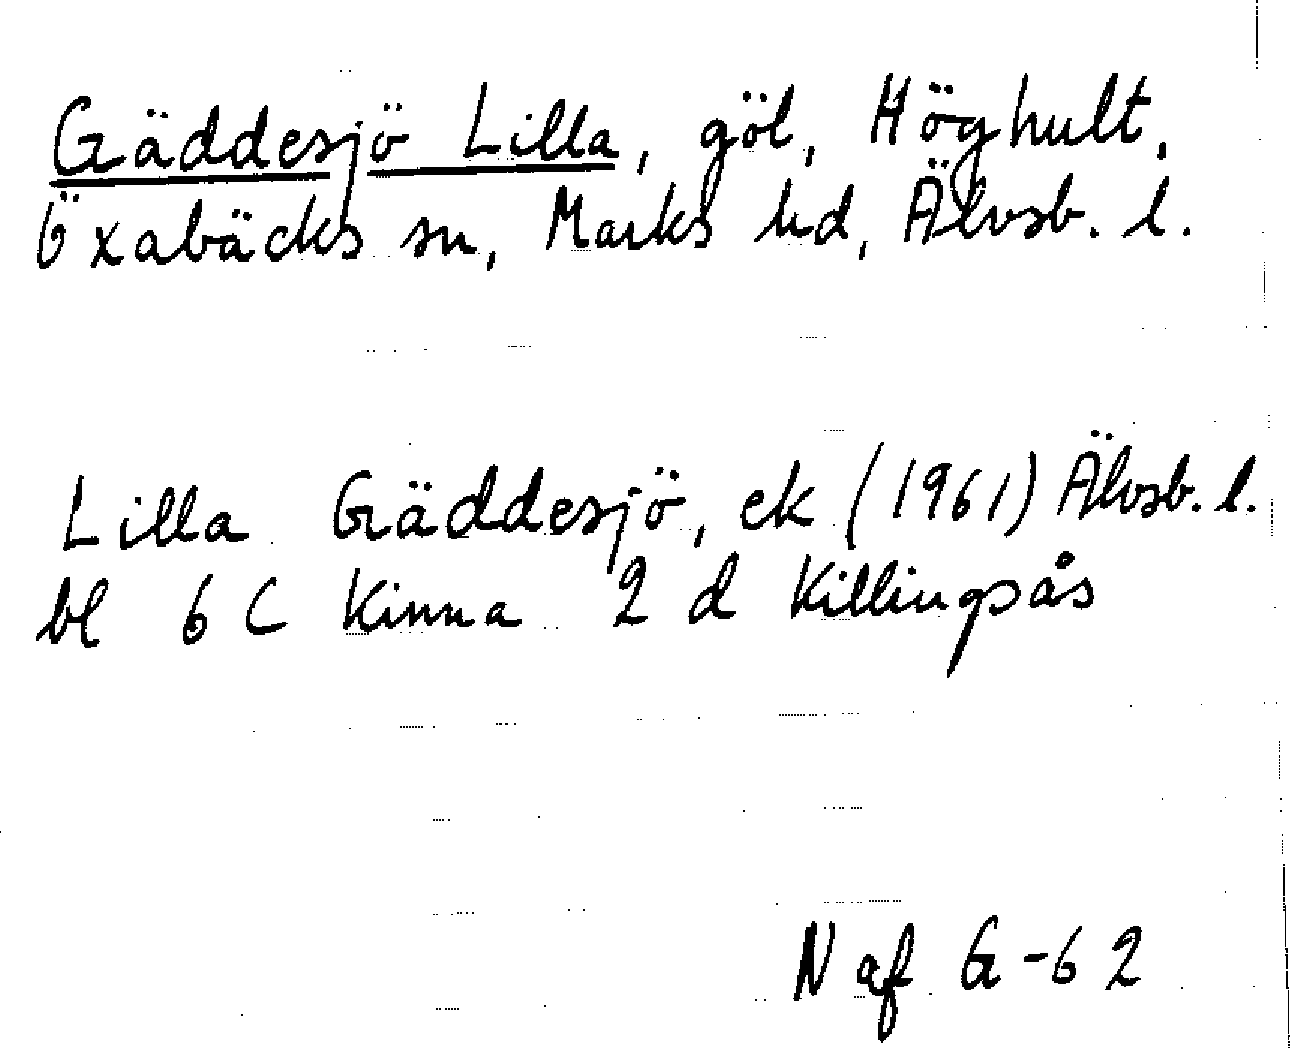 Gäddesjö Lilla, göl, Höghult,
Öxabäcks sn, Marks hd, Älvsb. l.
Lilla Gäddesjö, ek (1961) Älvsb. l.
bl 6 C Kinna 2 d Killingsås
N af G-62